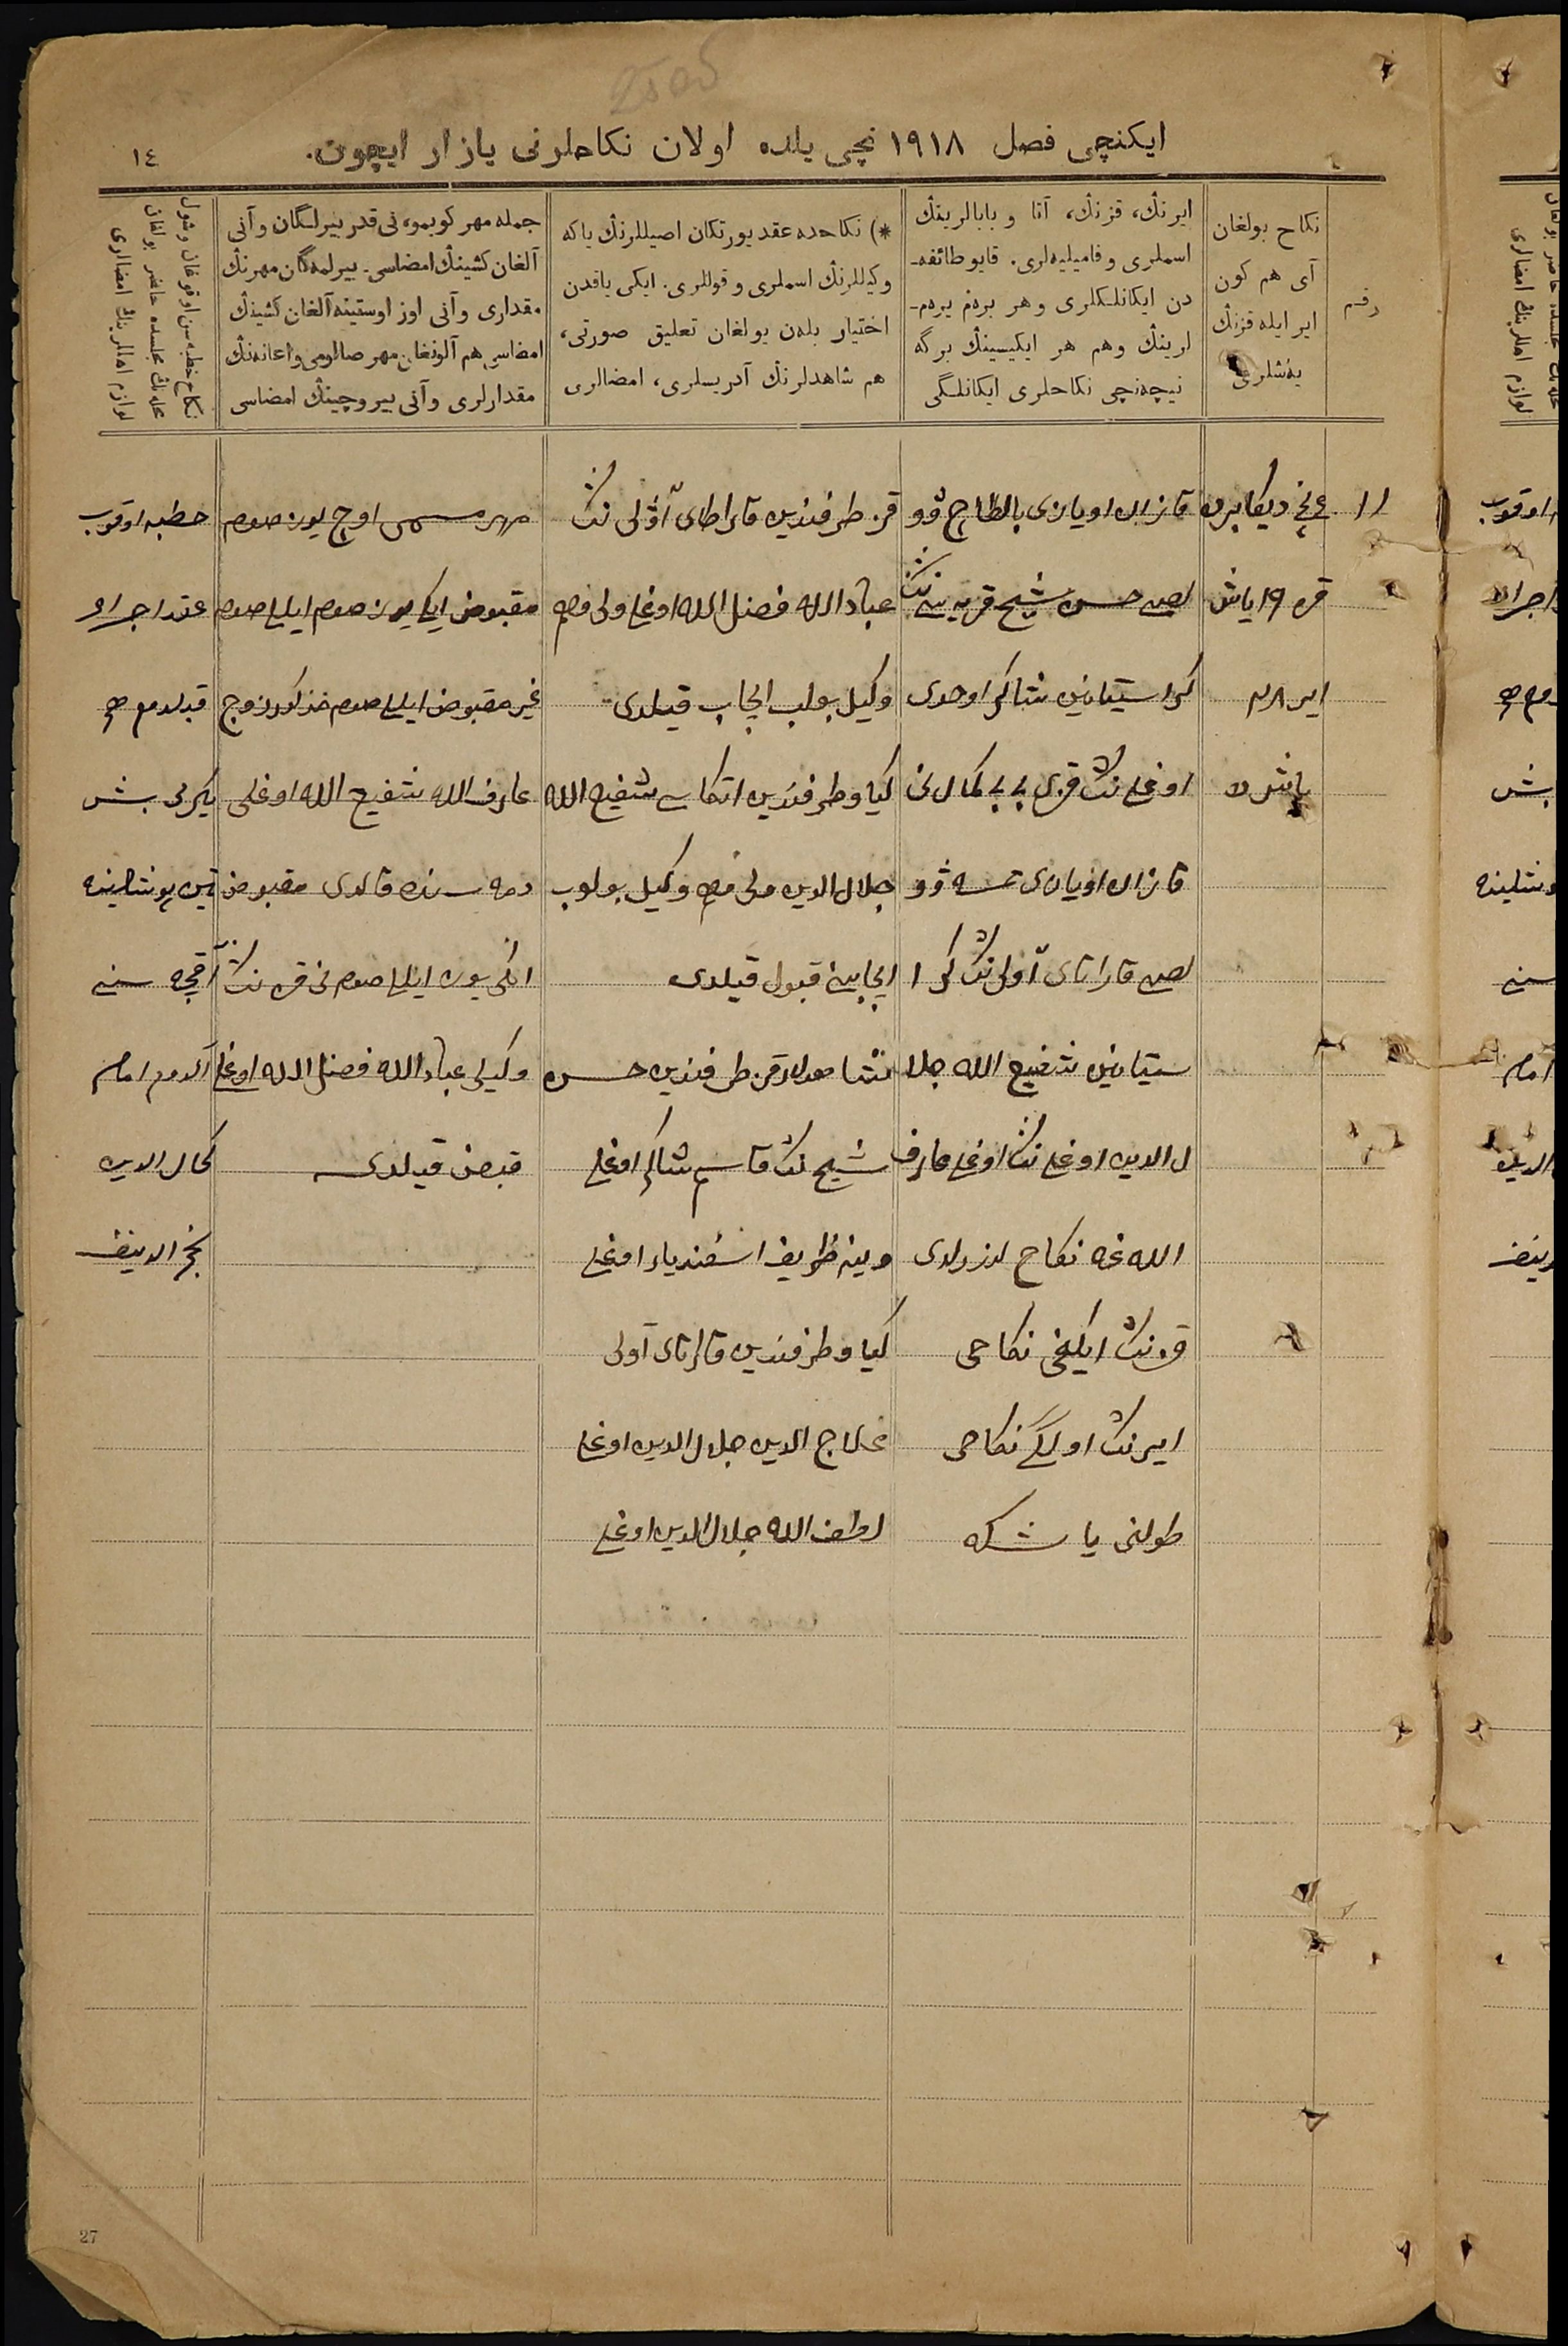 ایکنچی فصل ١٩١٨ نچی یلده اولان نکاحلرنی یازار ایچون.
١٤
رقم
نکاح بولغان
آی هم کون
ایر ایله قزنڭ
یەشلری
ایرنڭ، قزنڭ، آتا و بابالرینڭ
اسملری و فامیلیەلری. قایو طائفه‌ـ
دن ایکانلکلری و هر برەم یرەم‌ـ
لرینڭ وهم هر ایکیسینڭ برگه
نیچەنچی نکاحلری ایکانلگی
*) نکاحده عقد یورتکان اصیللرنڭ یاکه
وکیللرنڭ اسملری و قوللری. ایکی یاقدن
اختیار بلەن بولغان تعلیق صورتی،
هم شاهدلرنڭ آدریسلری، امضالری
جمله مهر کوبمو، نی قدر بیرلگان و آنی
آلغان کشینڭ امضاسی. بیرلمەگان مهرنڭ
مقداری و آنی اوز اوستینه آلغان کشینڭ
امضاسی هم آلونغان مهر صالومی و اعانەنڭ
مقدارلری و آنی بیروچینڭ امضاسی
نکاح خطبەسن اوقوغان و شول
محلەنڭ مجلسده حاضر بولغان
لوازم اهللرینڭ امضالری
١١
دیکابرده
قز ١٩ یاش
ایر
یاش ده
قازان اویازی بالطاچ ۋو
لصی حسن شیخ قریەسی نڭ
کراستیانین شاکر احمدی
اوغلی نڭ قزی بی بی کمال نی
قازان اویازی ۋو
لصی قاراتای آولی نڭ کرا
ستیانین شفیع الله جلا
ل الدین اوغلی نڭ اوغلی عارف
الله غه نکاح لنزلدی
قزنڭ ایکنچی نکاحی
ایرنڭ اولگی نکاحی
طولنی یاشکه
قز طرفندین قاراطای آولی نڭ
عباد الله فضل الله اوغلی ولی فه
وکیل بولب ایجاب قیلدی
کیاو طرفندین اتکاسی شفیع الله
جلال الدین ولی فه وکیل بولوب
ایجابینی قبول قیلدی
شاهدلر قز طرفندین حسن
شیخ نڭ قاسم شاکر اوغلی
وینه ظریف اسفندیار اوغلی
کیاو طرفندین قاراتای آولی
علاج الدین جلال الدین اوغلی
لطف الله جلال الدین اوغلی
مهر مسمی اوچ یوز صوم
مقبوض ایکی یوز صوم ایللی صوم
غیر مقبوض ایللی صوم مذکور زوج
عارف الله شفیع الله اوغلی
ذمه سنده قالدی مقبوض
ایکی یوز ایللی صوم نی قزنڭ
وکیلی عباد الله فضل الله اوغلی
قبض قیلدی
خطبه اوقوب
عقد اجرا
قیلدم مع
یکرمی بش
تین پوشلینه
آقچه سینی
آلدم امام
کمال الدین
فخرالدینف
27